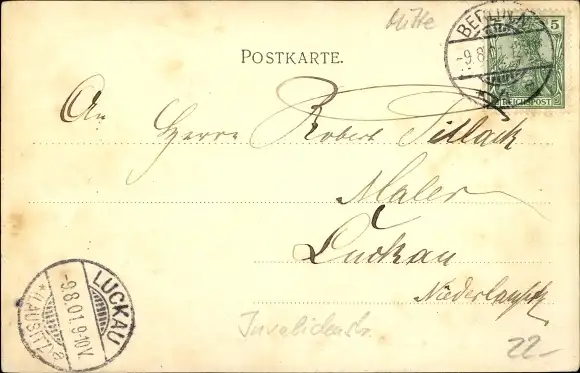 Mitte
BERLIN, N.
-9.8.01
5
REICHSPOST
POSTKARTE.
An
Herrn Robert Tillack
Maler
Luckau
Niederlausitz
LUCKAU
-9.8.01.9-10V.
*(LAUSITZ) a
Invalidenstr.
22-